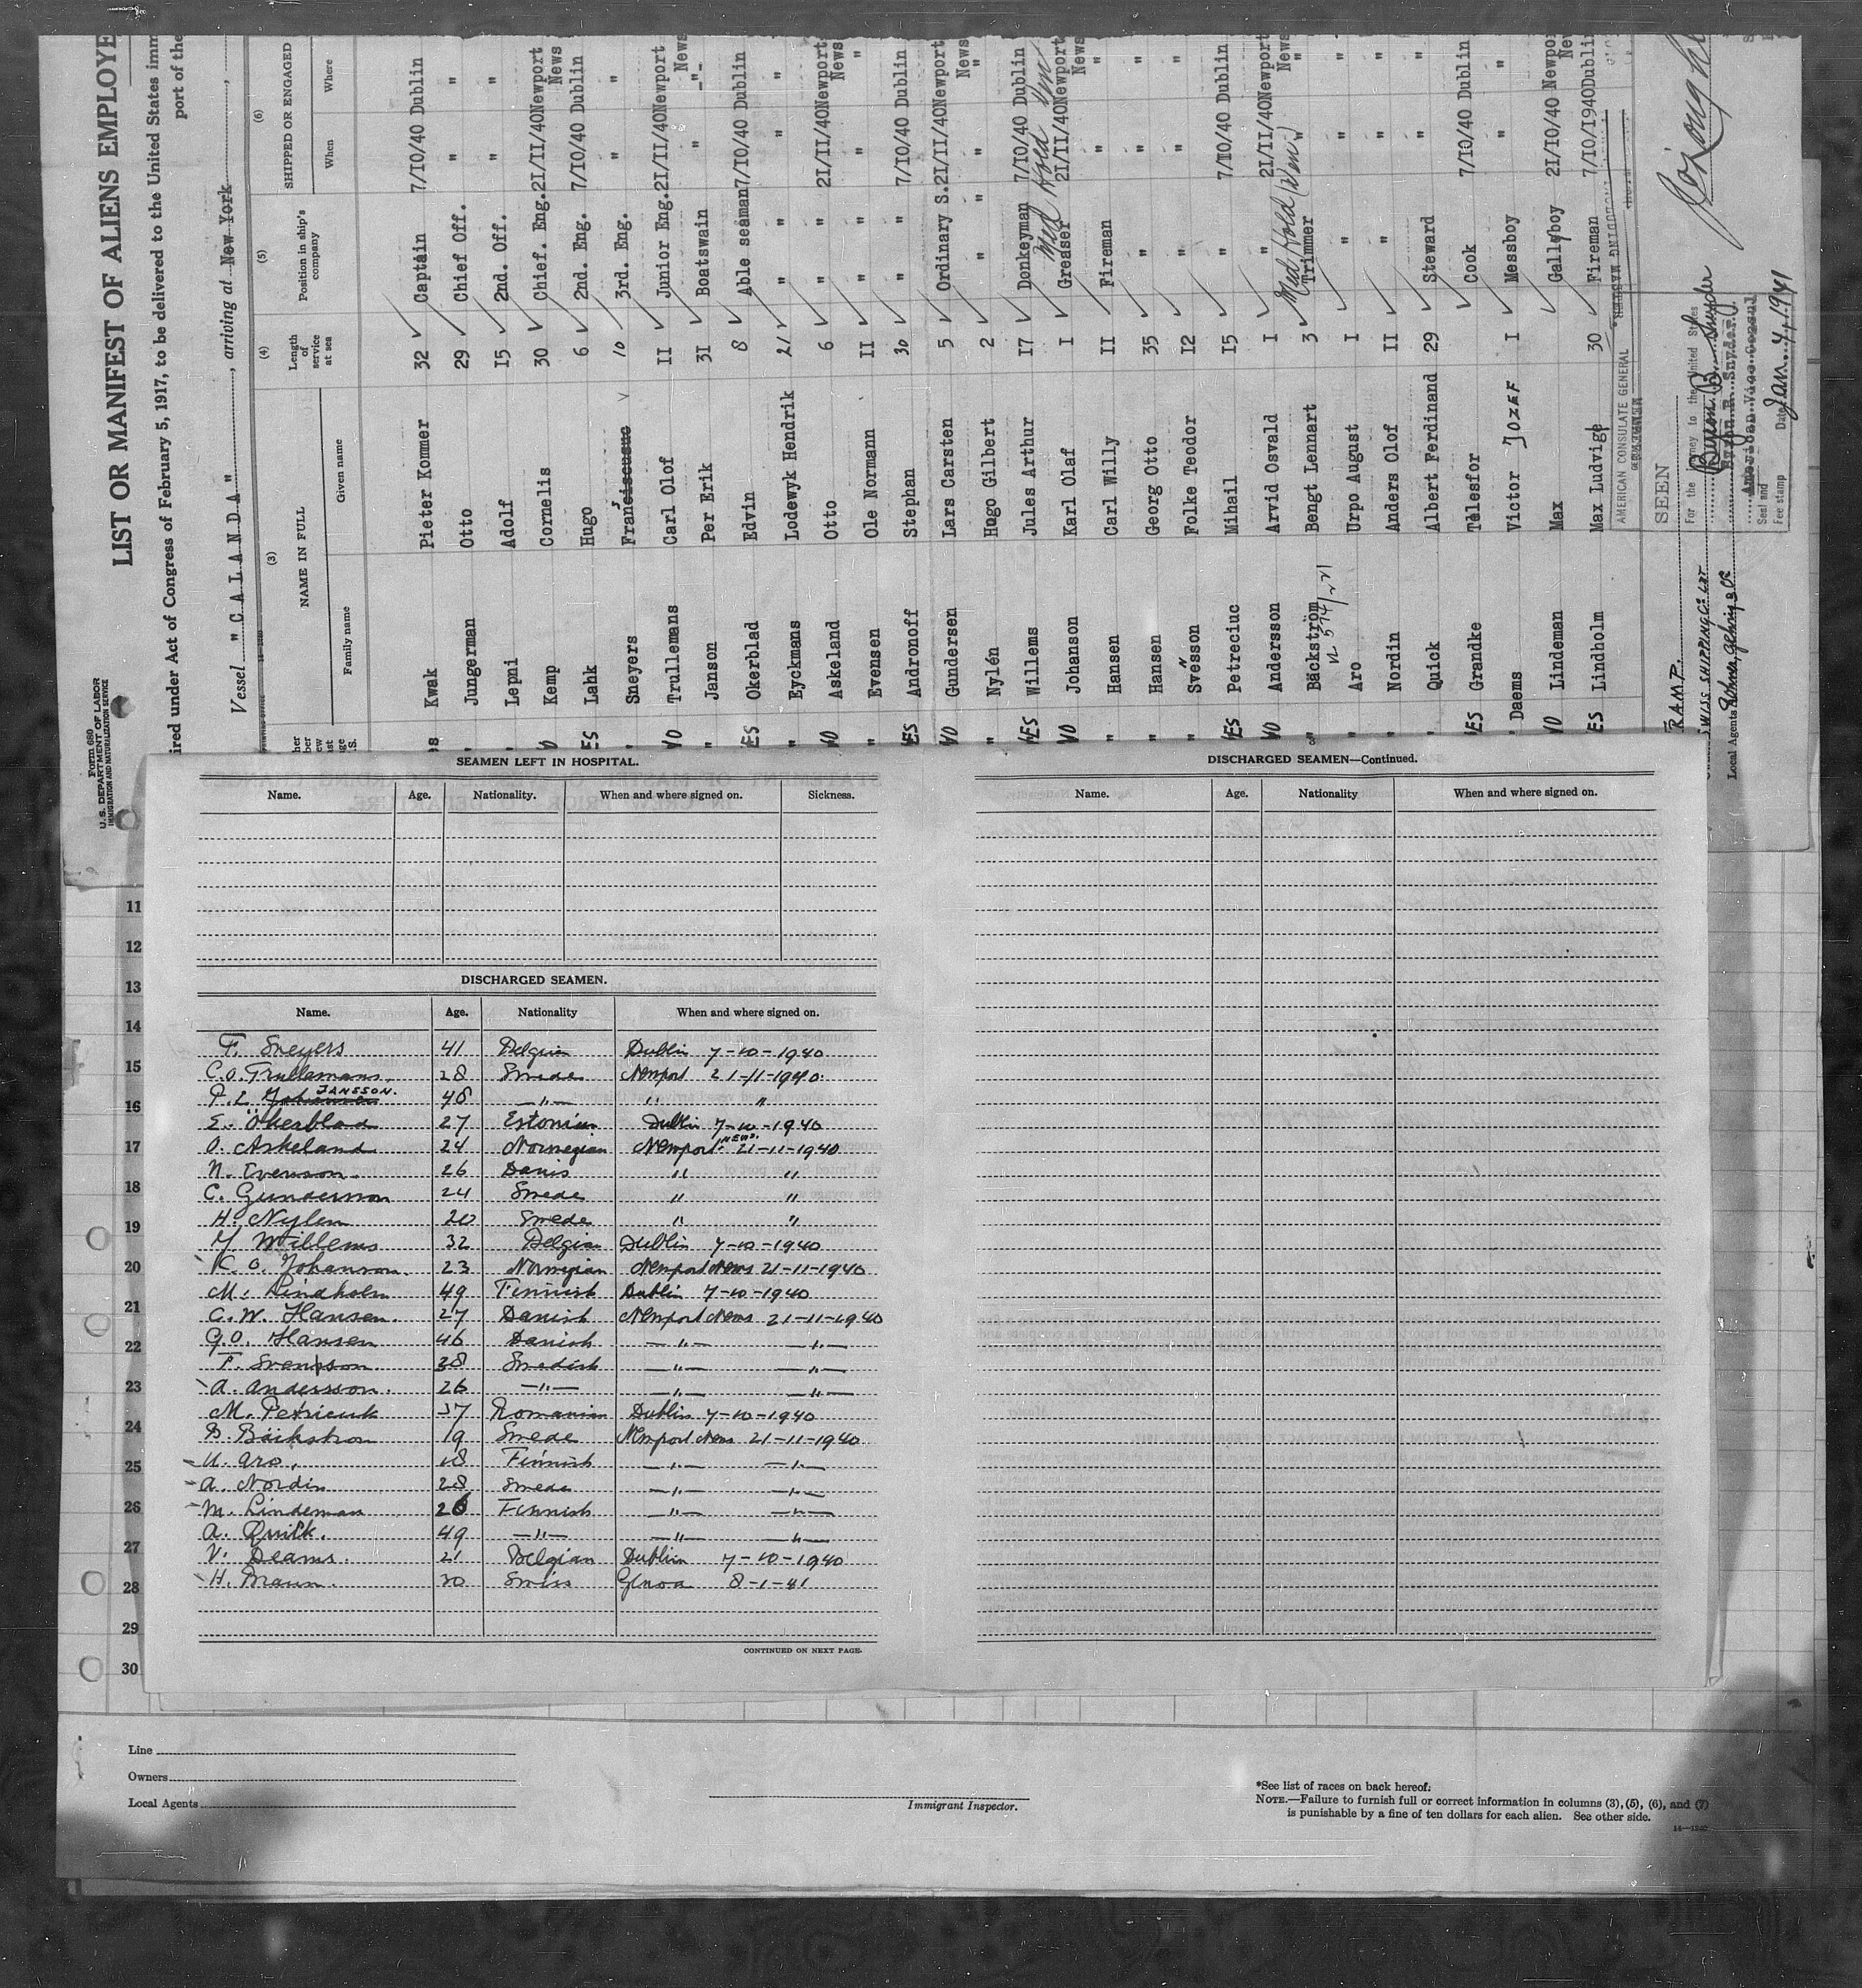 Form 680
U. S. DEPARTMENT OF LABOR
IMMIGRATION AND NATURALIZATION SERVICE
LIST OR MANIFEST OF ALIENS EMPLOYE
ired under Act of Congress of February 5, 1917, to be delivered to the United States imm
port of the
Vessel "CALANDA", arriving at New York
(3) (4) (5) (6)
NAME IN FULL Length of service at sea Position in ship's company SHIPPED OR ENGAGED
Family name Given name When Where
Kwak Pieter Kommer 32 Captain 7/I0/40 Dublin
" Jungerman Otto 29 Chief Off. " "
" Lepni Adolf I5 2nd. Off. " "
Kemp Cornelis 30 Chief. Eng. 2I/II/40 Newport News
ES Lahk Hugo 6 2nd. Eng. 7/I0/40 Dublin
" Sneyers Franciscusuc 10 3rd. Eng. " "
NO Trullemans Carl Olof II Junior Eng. 2I/II/40 Newport News
" Janson Per Erik 3I Boatswain " -"-
ES Okerblad Edvin 8 Able seaman 7/I0/40 Dublin
" Eyckmans Lodewyk Hendrik 21 " " "
NO Askeland Otto 6 " 2I/II/40 Newport News
" Evensen Ole Normann II " " "
ES Andronoff Stephan 30 " 7/I0/40 Dublin
NO Gundersen Lars Carsten 5 Ordinary S. 2I/II/40 Newport News
" Nylén Hugo Gilbert 2 " " "
YES Willems Jules Arthur I7 Donkeyman 7/I0/40 Dublin
Med Hold Ven
NO Johanson Karl Olaf I Greaser 2I/II/40 Newport News
" Hansen Carl Willy II Fireman " "
" Hansen Georg Otto 35 " " "
" Svensson Folke Teodor I2 " " "
ES Petreciuc Mihail I5 " 7/I0/40 Dublin
NO Andersson Arvid Osvald I " 2I/II/40 Newport News
Med Hold (Ven)
" Bäckström Bengt Lennart 3 Trimmer " "
" Aro Urpo August I " " "
" Nordin Anders Olof II " " "
" Quick Albert Ferdinand 29 Steward " "
ES Grandke Telesfor Cook 7/I0/40 Dublin
" Daems Victor JOZEF I Messboy " "
NO Lindeman Max Galleyboy 2I/I0/40 Newport News
ES Lindholm Max Ludvig 30 Fireman 7/I0/I940 Dublin
AMERICAN CONSULATE GENERAL
SEEN
For the journey to the United States
Byron B. Snyder
Byron B. Snyder
American Vice Consul
Seal and Fee stamp Date Jan. 4, 1941
Local Agents
SEAMEN LEFT IN HOSPITAL.
Name. Age. Nationality. When and where signed on. Sickness.
DISCHARGED SEAMEN.
Name. Age. Nationality When and where signed on.
F. Sneyers 41 Belgian Dublin 7-10-1940
C.O. Trullemans 28 Swede Newport 21-11-1940.
P.E. JANSSON. 48 -"- " "
E. Ökerblad 27 Estonian Dublin 7-10-1940
O. Askeland 24 Norwegian Newport NEWS. 21-11-1940
N. Evenson. 26 Danis " "
C. Gunderson 24 Swede " "
H. Nylen 20 Swede " "
Y Willems 32 Belgian Dublin 7-10-1940
K. O. Johanson. 23 Norwegian Newport News 21-11-1940
M. Lindholm 49 Finnish Dublin 7-10-1940
C. W. Hansen. 27 Danish Newport News 21-11-1940
G.O. Hansen 46 Danish -"- -"-
F. Svensson. 38 Swedish -"- -"-
A. Andersson. 26 -"- -"- -"-
M. Petricuk 37 Romanian Dublin 7-10-1940
B. Bäckstron 19 Swede Newport News 21-11-1940
U. Aro. 18 Finnish -"- -"-
A. Nordin 28 Swede -"- -"-
M. Lindeman 26 Finnish -"- -"-
A. Quick. 49 -"- -"- -"-
V. Deams. 21 Belgian Dublin 7-10-1940
H. Braun. 30 Swiss Genoa 8-1-41
CONTINUED ON NEXT PAGE.
DISCHARGED SEAMEN—Continued.
Name. Age. Nationality When and where signed on.
11
12
13
14
15
16
17
18
19
20
21
22
23
24
25
26
27
28
29
30
Line
Owners
Local Agents
Immigrant Inspector.
*See list of races on back hereof.
NOTE.—Failure to furnish full or correct information in columns (3), (5), (6), and (7)
is punishable by a fine of ten dollars for each alien. See other side.